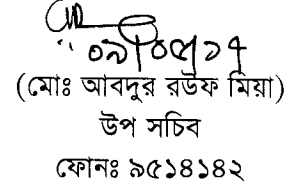 ০৯/০৫/১৭
(মোঃ আবদুর রউফ মিয়া)
উপ সচিব
ফোনঃ ৯৫১৪১৪২